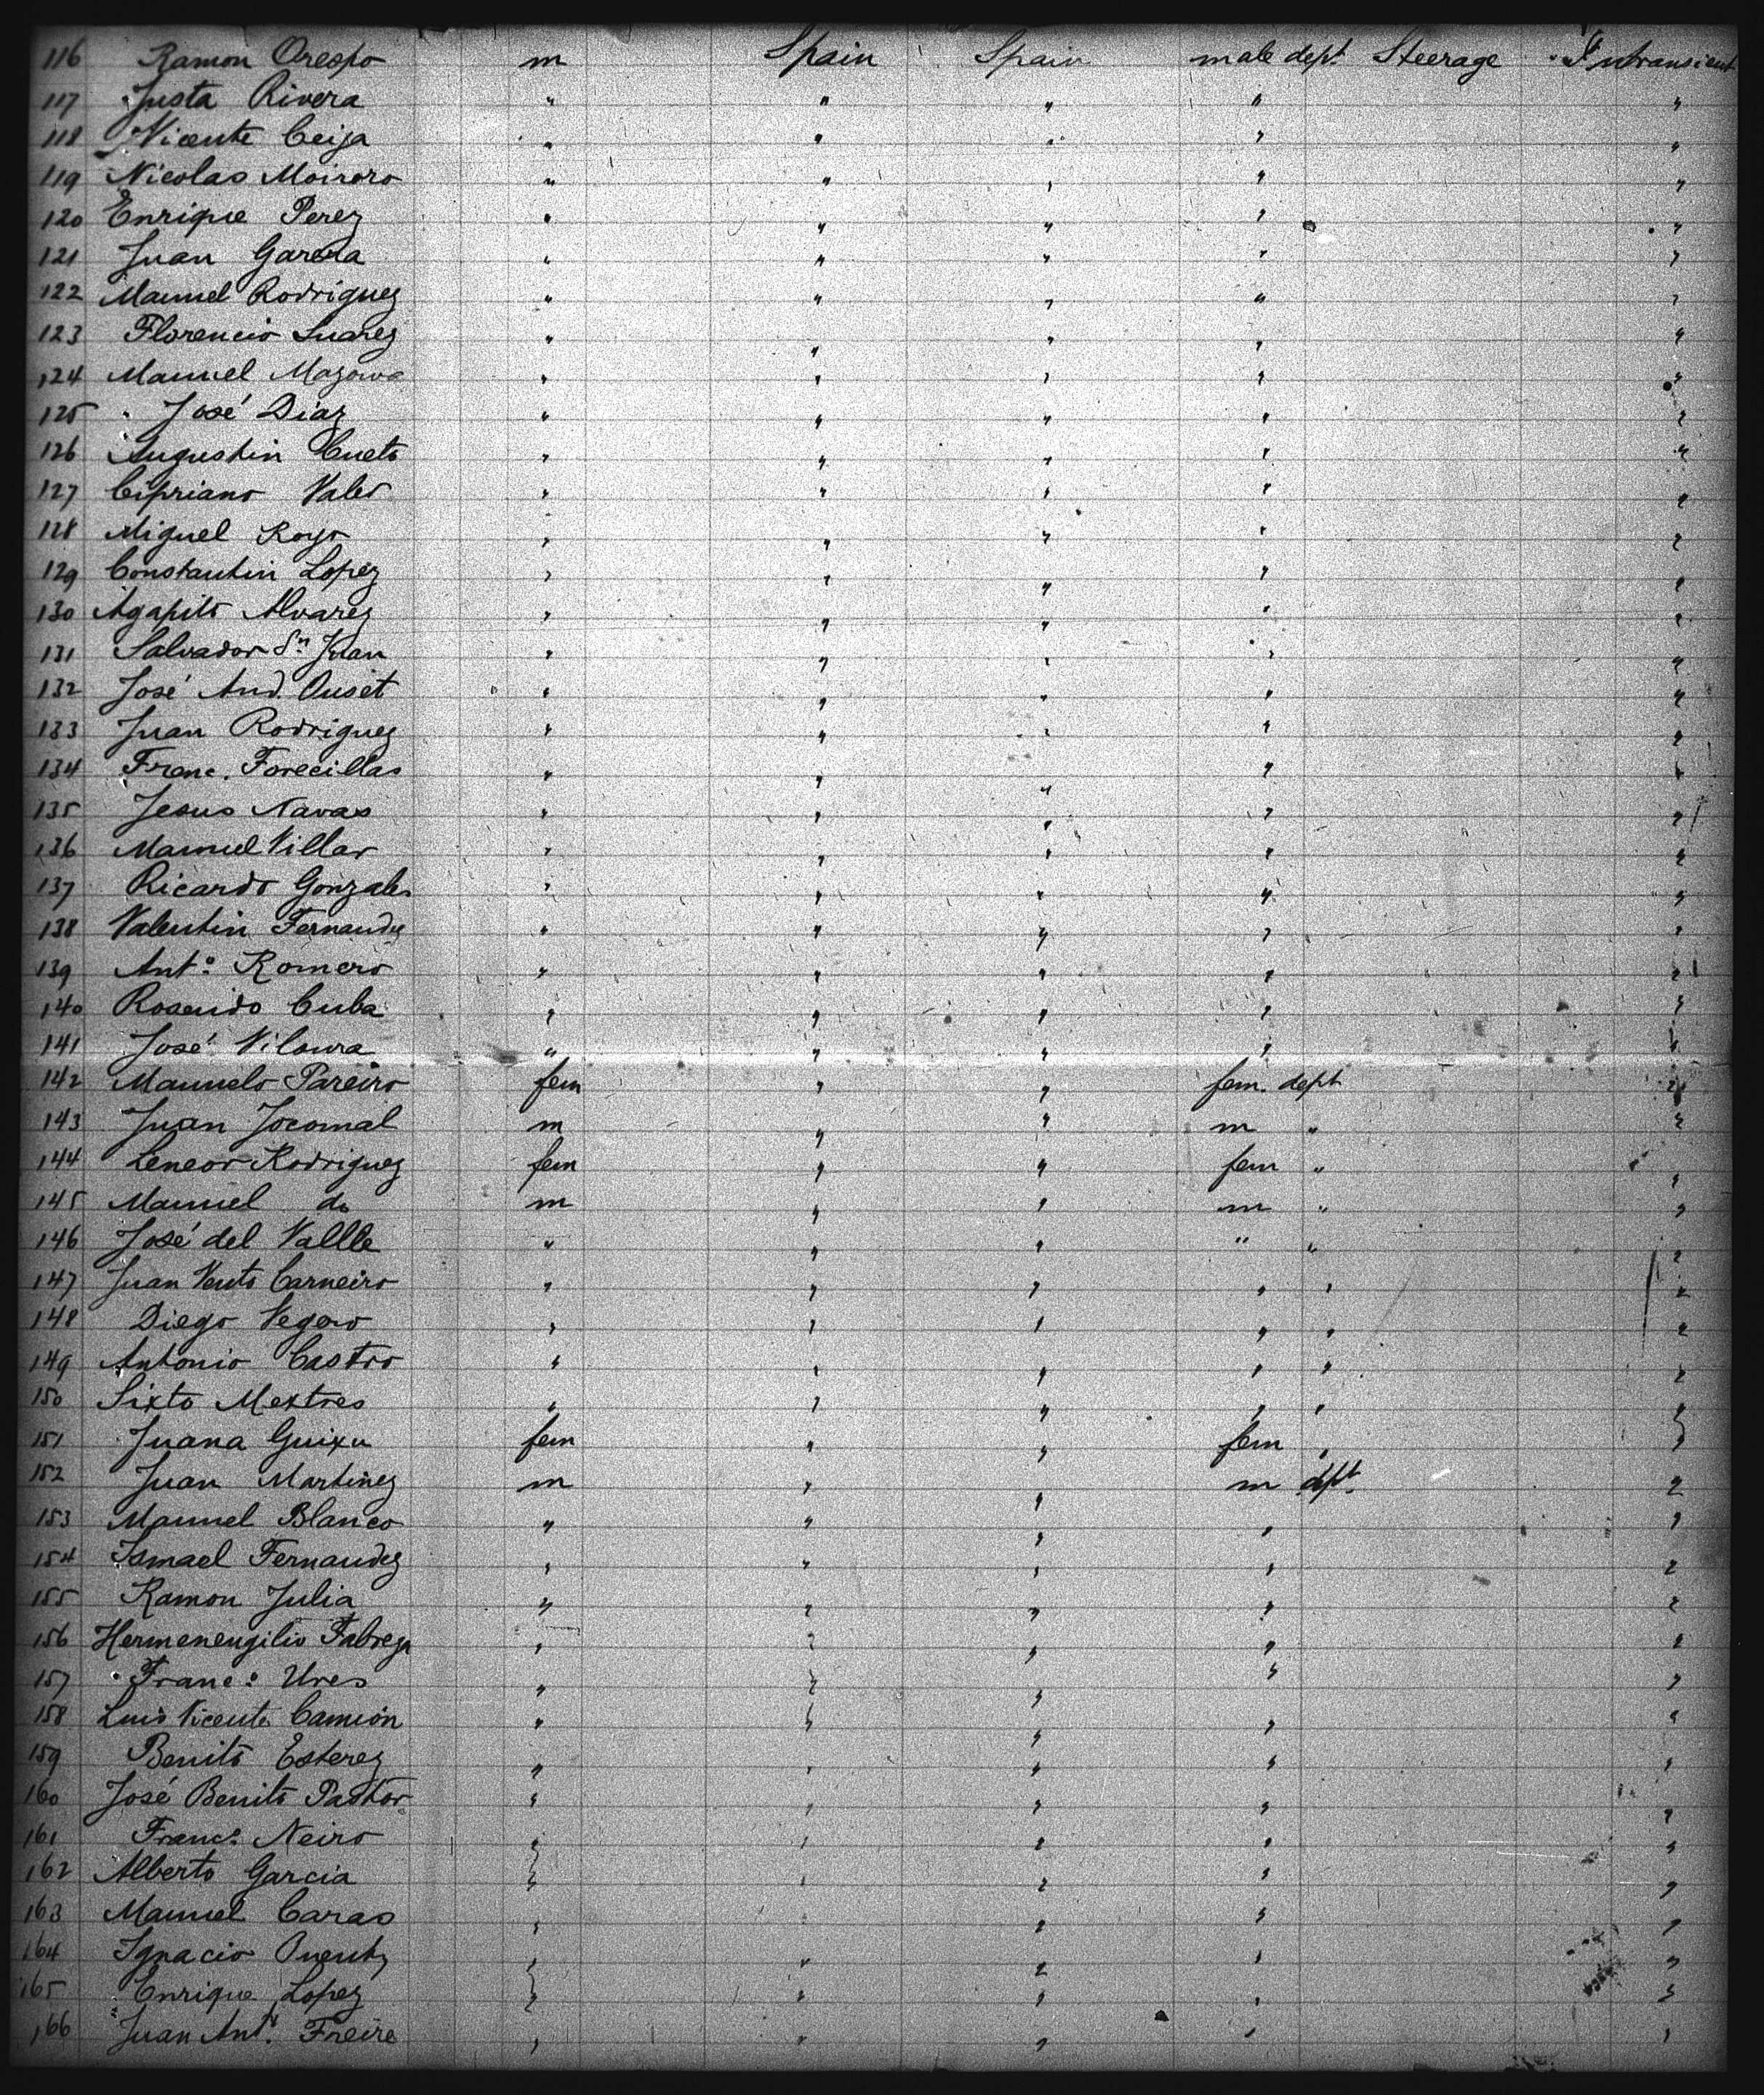 116 Ramon Orespo m Spain Spain male dept. Steerage Intransient
117 Justa Rivera " " " " "
118 Vicente Ceija " " " " "
119 Nicolas " " " " "
120 Enrique Perez " " " " "
121 Juan Garcia " " " " "
122 Manuel Rodriguez " " " " "
123 Florencio Suarez " " " " "
124 Manuel " " " " "
125 José Diaz " " " " "
126 Augustin Cueto " " " " "
127 Cipriano Vales " " " " "
128 Miguel Royo " " " " "
129 Constantin Lopez " " " " "
130 Agapito Alvarez " " " " "
131 Salvador Sn Juan " " " " "
132 José And. Ouset " " " " "
133 Juan Rodriguez " " " " "
134 Franc. Forecillas " " " " "
135 Jesus Navas " " " " "
136 Manuel Villar " " " " "
137 Ricardo Gonzales " " " " "
138 Valentin Fernandez " " " " "
139 Anto. Romero " " " " "
140 Rosendo Cuba " " " " "
141 José Viloura " " " " "
142 Manuelo Pareiro fem " " fem. dept "
143 Juan Jocomal m " " m " "
144 Leneor Rodriguez fem " " fem " "
145 Manuel do m " " m " "
146 José del Vallle " " " " " "
147 Juan Vento Carneiro " " " " " "
148 Diego Vegero " " " " " "
149 Antonio Castro " " " " " "
150 Sixto Mextres " " " " " "
151 Juana Guixu fem " " fem " "
152 Juan Martinez m " " m dpt. "
153 Manuel Blanco " " " " "
154 Ismael Fernandez " " " " "
155 Ramon Julia " " " " "
156 Hermenengilio Fabrega " " " " "
157 Franco. Ures " " " " "
158 Luis Vicente Camión " " " " "
159 Benito Esterez " " " " "
160 José Benito Pastor " " " " "
161 Franco. Neiro " " " " "
162 Alberto Garcia " " " " "
163 Manuel Caras " " " " "
164 Ignacio " " " " "
165 Enrique Lopez " " " " "
166 Juan Anto. Freire " " " " "